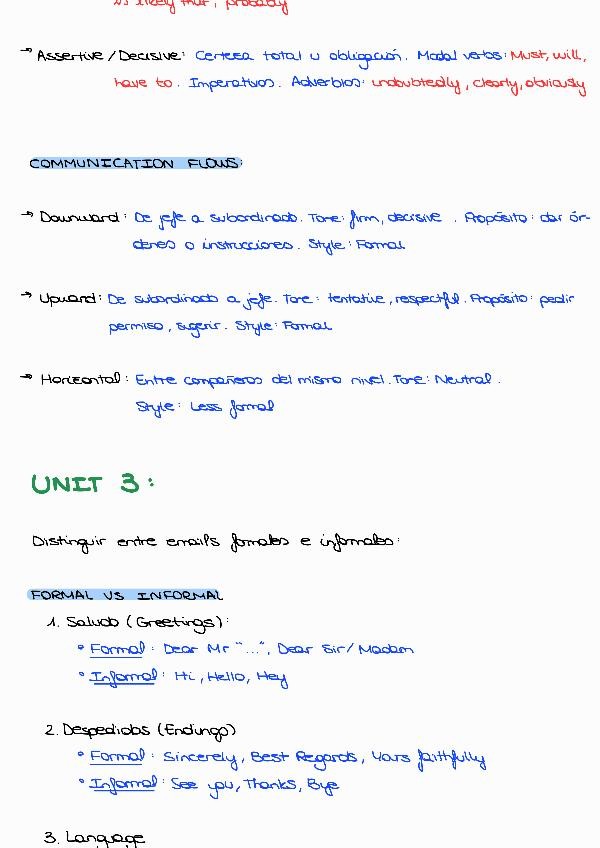 is likely that, probably
→ Assertive / Decisive: Certeza total u obligación. Modal verbs: Must, will,
have to. Imperativos. Adverbios: undoubtedly, clearly, obviously
COMMUNICATION FLOWS:
→ Downward: De jefe a subordinado. Tone: firm, decisive. Propósito: dar ór-
denes o instrucciones. Style: Formal
→ Upward: De subordinado a jefe. Tone: tentative, respectful. Propósito: pedir
permiso, sugerir. Style: Formal
→ Horizontal: Entre compañeros del mismo nivel. Tone: Neutral.
Style: Less formal
UNIT 3:
Distinguir entre emails formales e informales:
FORMAL VS INFORMAL
1. Saludo (Greetings):
• Formal: Dear Mr "...", Dear Sir/Madam
• Informal: Hi, Hello, Hey
2. Despedidas (Endings)
• Formal: Sincerely, Best Regards, Yours faithfully
• Informal: See you, Thanks, Bye
3. Language